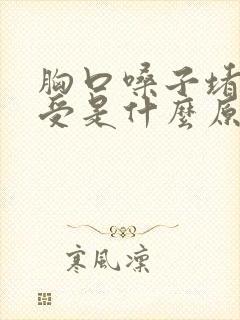 胸口嗓子堵
受是什麼原
寒風凜